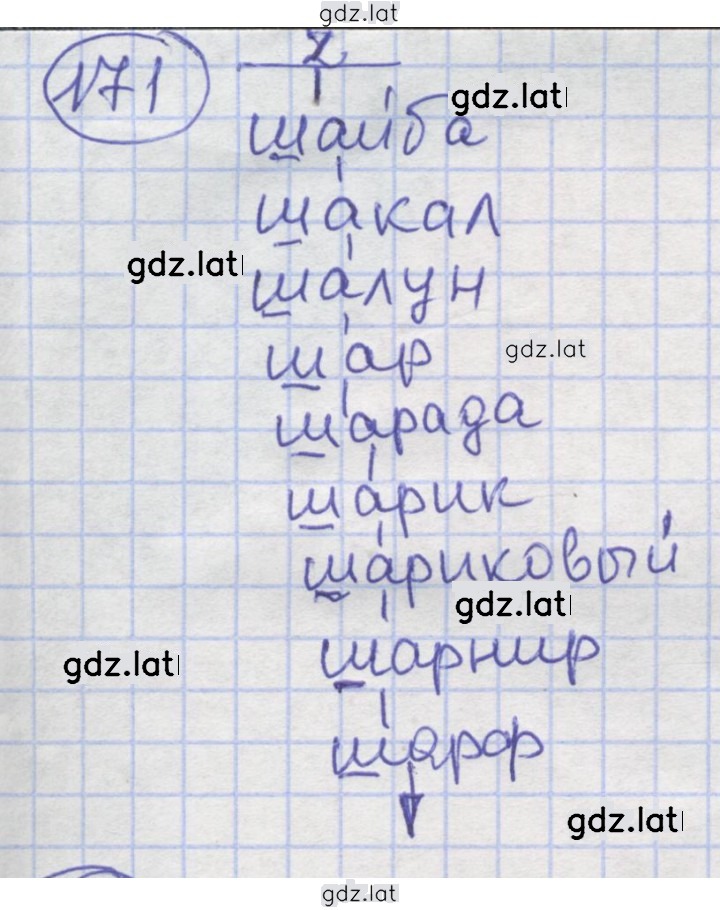 gdz.lat
171 2
gdz.lat
шайба
шакал
gdz.lat
шалун
шар
gdz.lat
шарада
шарик
шариковый
gdz.lat
шарнир
gdz.lat
шарф
gdz.lat
gdz.lat